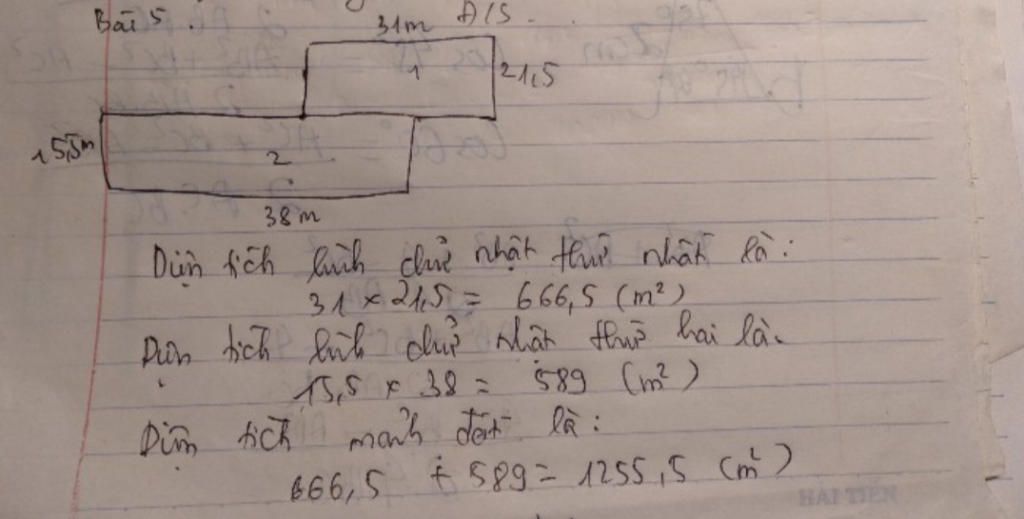 Bài 5.
31m
1
21,5
15,5m
2
38m
Diện tích hình chữ nhật thứ nhất là:
31 × 21,5 = 666,5 (m²)
Diện tích hình chữ nhật thứ hai là.
15,5 × 38 = 589 (m²)
Diện tích mảnh đất là:
666,5 + 589 = 1255,5 (m²)
HẢI TIẾN